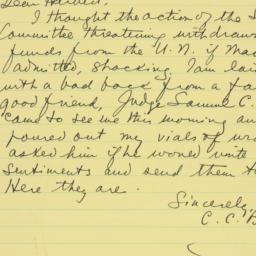 Dear Harold:
I thought the action of the S
Committee threatening withdraw
funds from the U.N. if Mao
admitted, shocking. I am lai
with a bad back from a fa
good friend, Judge Samuel C.
came to see me this morning an
poured out my vials of wr
asked him if he would write
sentiments and send them t
Here they are.
Sincerely,
C. C. B